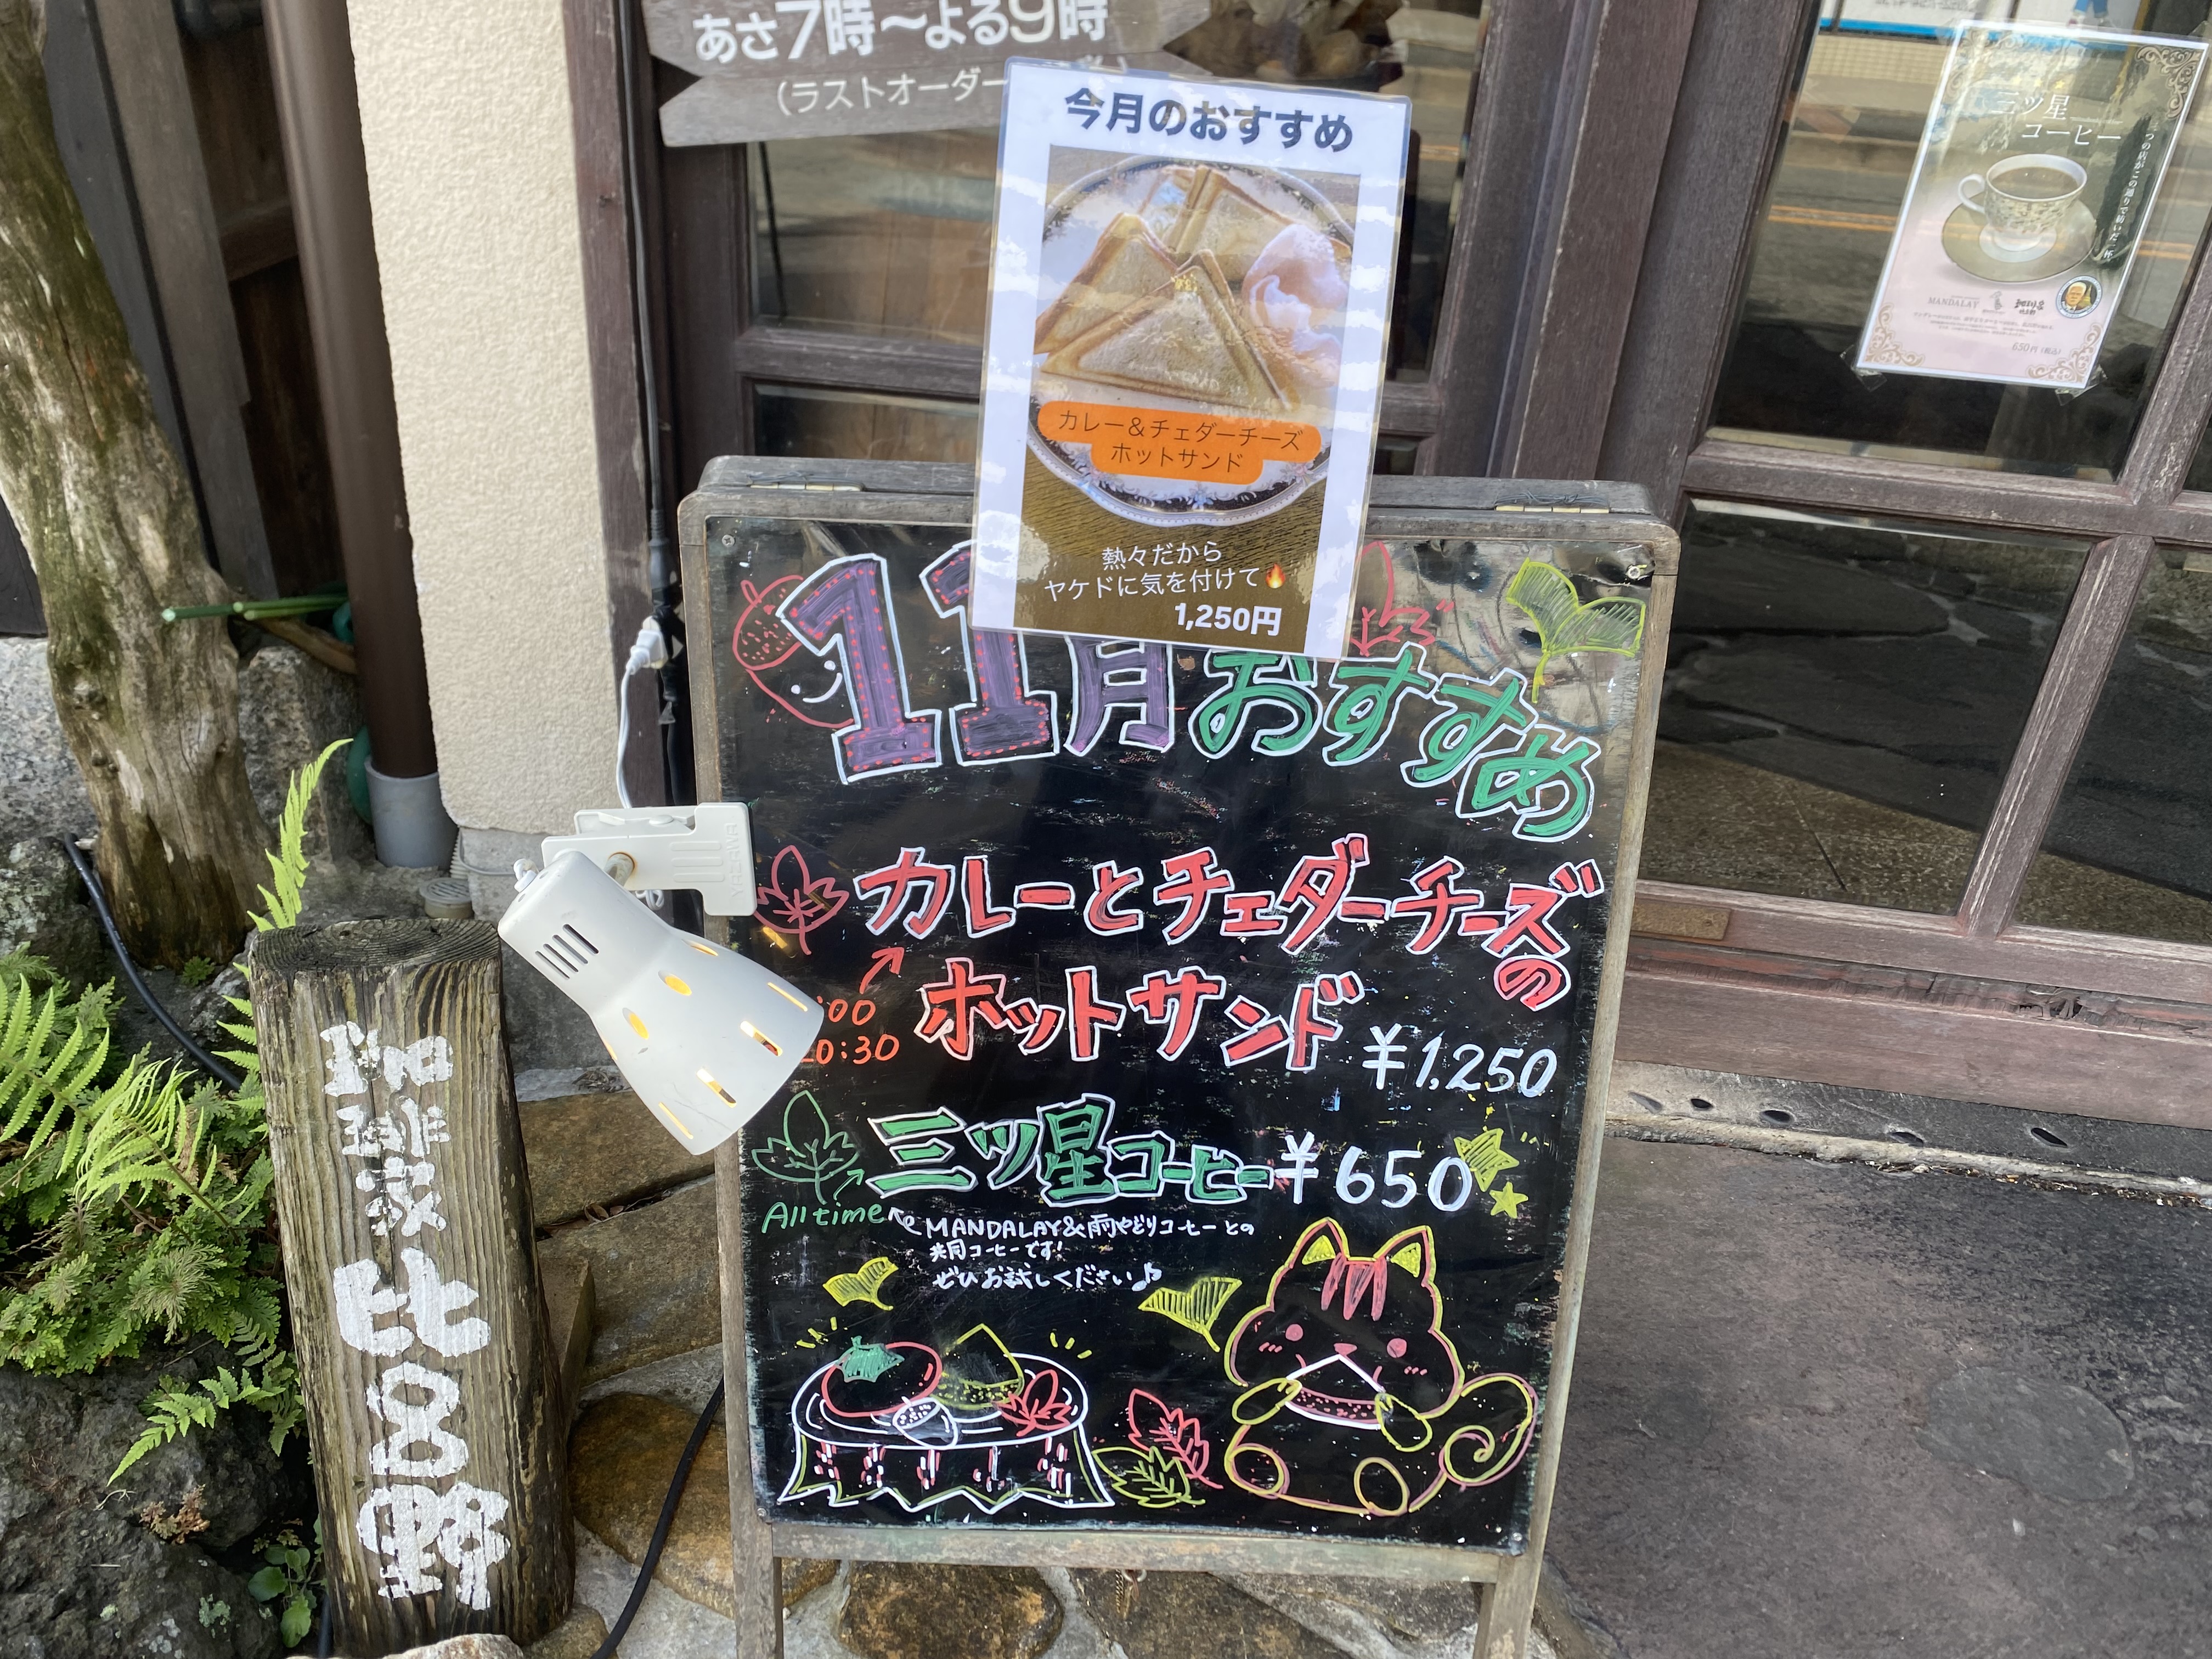 あさ7時〜よる9時
(ラストオーダー
今月のおすすめ
カレー＆チェダーチーズ
ホットサンド
熱々だから
ヤケドに気を付けて🔥
1,250円
三ツ星
コーヒー
MANDALAY
650円(税込)
11月おすすめ
カレーとチェダーチーズの
ホットサンド
:00
:30
¥1,250
三ツ星コーヒー ¥650
All time
MANDALAY&雨やどりコーヒーとの
共同コーヒーです!
ぜひお試しください♪
珈琲家
比呂野